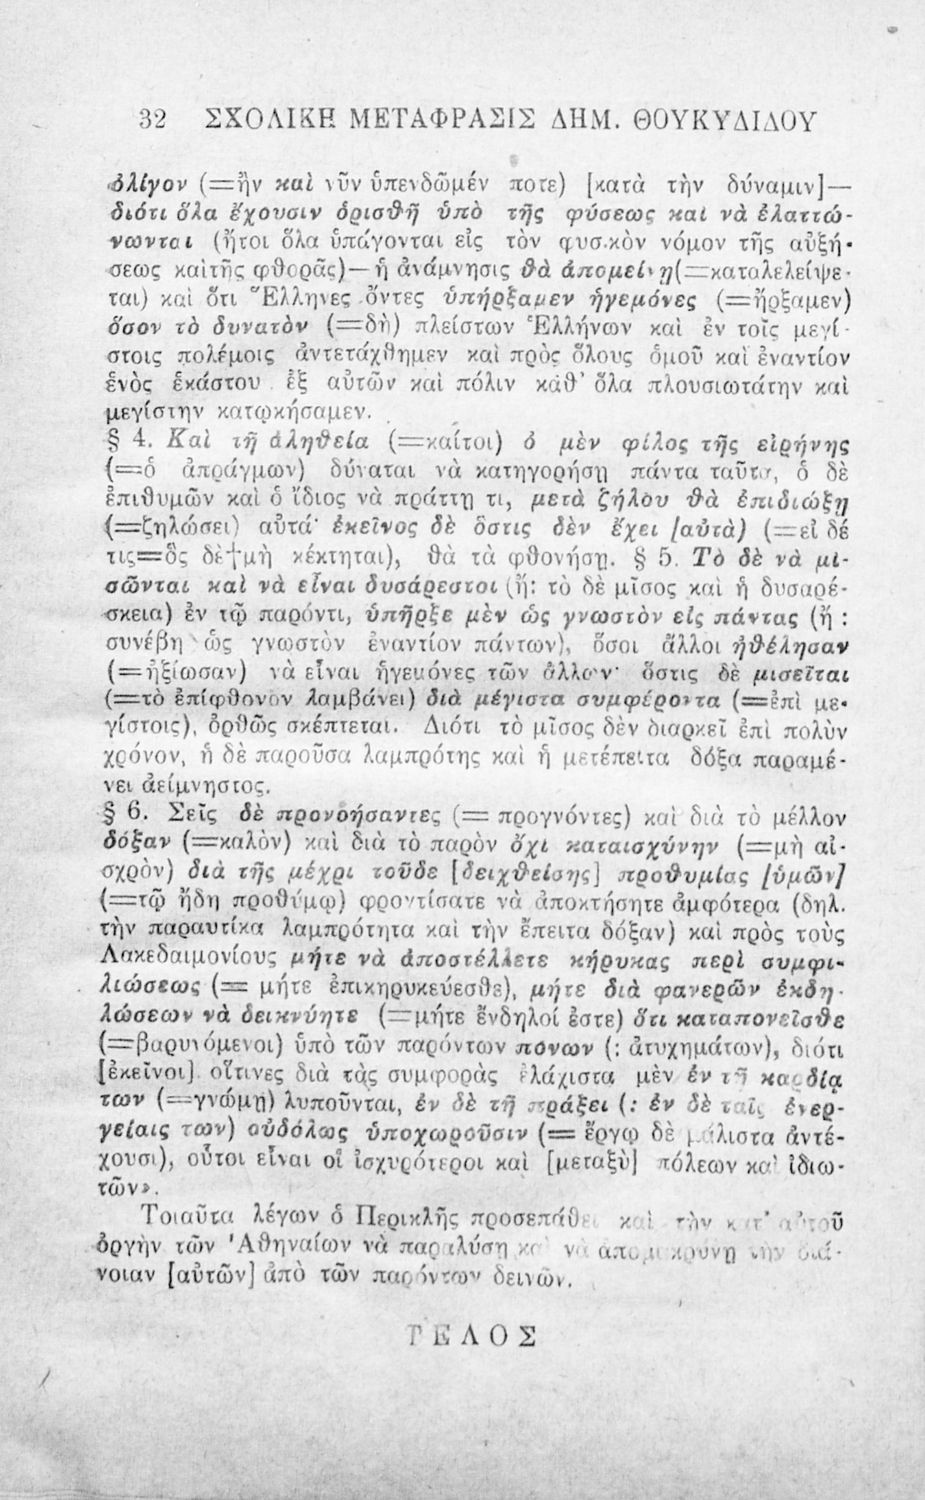 32 ΣΧΟΛΙΚΗ ΜΕΤΑΦΡΑΣΙΣ ΔΗΜ. ΘΟΥΚΥΔΙΔΟΥ
ὀλίγον (=ἢν καὶ νῦν ὑπενδῶμέν ποτε) [κατὰ τὴν δύναμιν]—
διότι ὅλα ἔχουσιν ὁρισθῆ ὑπὸ τῆς φύσεως καὶ νὰ ἐλαττώ-
νωνται (ἤτοι ὅλα ὑπάγονται εἰς τὸν φυσικὸν νόμον τῆς αὐξή-
σεως καὶτῆς φθορᾶς)—ἡ ἀνάμνησις θὰ ἀπομείνῃ(=καταλελείψε-
ται) καὶ ὅτι Ἕλληνες ὄντες ὑπήρξαμεν ἡγεμόνες (=ἤρξαμεν)
ὅσον τὸ δυνατὸν (=δὴ) πλείστων Ἑλλήνων καὶ ἐν τοῖς μεγί-
στοις πολέμοις ἀντετάχθημεν καὶ πρὸς ὅλους ὁμοῦ καὶ ἐναντίον
ἑνὸς ἑκάστου ἐξ αὐτῶν καὶ πόλιν καθ' ὅλα πλουσιωτάτην καὶ
μεγίστην κατῳκήσαμεν.
§ 4. Καὶ τῇ ἀληθείᾳ (=καίτοι) ὁ μὲν φίλος τῆς εἰρήνης
(=ὁ ἀπράγμων) δύναται νὰ κατηγορήσῃ πάντα ταῦτα, ὁ δὲ
ἐπιθυμῶν καὶ ὁ ἴδιος νὰ πράττῃ τι, μετὰ ζήλου θὰ ἐπιδιώξῃ
(=ζηλώσει) αὐτά· ἐκεῖνος δὲ ὅστις δὲν ἔχει [αὐτὰ) (=εἰ δέ
τις=ὃς δὲ μὴ κέκτηται), θὰ τὰ φθονήσῃ. § 5. Τὸ δὲ νὰ μι-
σῶνται καὶ νὰ εἶναι δυσάρεστοι (ἤ: τὸ δὲ μῖσος καὶ ἡ δυσαρέ-
σκεια) ἐν τῷ παρόντι, ὑπῆρξε μὲν ὡς γνωστὸν εἰς πάντας (ἤ :
συνέβη ὡς γνωστὸν ἐναντίον πάντων), ὅσοι ἄλλοι ἠθέλησαν
(=ἠξίωσαν) νὰ εἶναι ἡγεμόνες τῶν ἄλλων· ὅστις δὲ μισεῖται
(=τὸ ἐπίφθονον λαμβάνει) διὰ μέγιστα συμφέροντα (=ἐπὶ με-
γίστοις), ὀρθῶς σκέπτεται. Διότι τὸ μῖσος δὲν διαρκεῖ ἐπὶ πολὺν
χρόνον, ἡ δὲ παροῦσα λαμπρότης καὶ ἡ μετέπειτα δόξα παραμέ-
νει ἀείμνηστος.
§ 6. Σεῖς δὲ προνοήσαντες (= προγνόντες) καὶ διὰ τὸ μέλλον
δόξαν (=καλὸν) καὶ διὰ τὸ παρὸν ὄχι καταισχύνην (=μὴ αἰ-
σχρὸν) διὰ τῆς μέχρι τοῦδε [δειχθείσης] προθυμίας [ὑμῶν]
(=τῷ ἤδη προθύμῳ) φροντίσατε νὰ ἀποκτήσητε ἀμφότερα (δηλ.
τὴν παραυτίκα λαμπρότητα καὶ τὴν ἔπειτα δόξαν) καὶ πρὸς τοὺς
Λακεδαιμονίους μήτε νὰ ἀποστέλλετε κήρυκας περὶ συμφι-
λιώσεως (= μήτε ἐπικηρυκεύεσθε), μήτε διὰ φανερῶν ἐκδη-
λώσεων νὰ δεικνύητε (=μήτε ἔνδηλοί ἐστε) ὅτι καταπονεῖσθε
(=βαρυνόμενοι) ὑπὸ τῶν παρόντων πόνων (: ἀτυχημάτων), διότι
[ἐκεῖνοι] οἵτινες διὰ τὰς συμφορὰς ἐλάχιστα μὲν ἐν τῇ καρδίᾳ
των (=γνώμῃ) λυποῦνται, ἐν δὲ τῇ πράξει (: ἐν δὲ ταῖς ἐνερ-
γείαις των) οὐδόλως ὑποχωροῦσιν (= ἔργῳ δὲ μάλιστα ἀντέ-
χουσι), οὗτοι εἶναι οἱ ἰσχυρότεροι καὶ [μεταξὺ] πόλεων καὶ ἰδιω-
τῶν».
Τοιαῦτα λέγων ὁ Περικλῆς προσεπάθει καὶ τὴν κατ' αὐτοῦ
ὀργὴν τῶν Ἀθηναίων νὰ παραλύσῃ καὶ νὰ ἀπομακρύνῃ τὴν διά-
νοιαν [αὐτῶν] ἀπὸ τῶν παρόντων δεινῶν.
ΤΕΛΟΣ